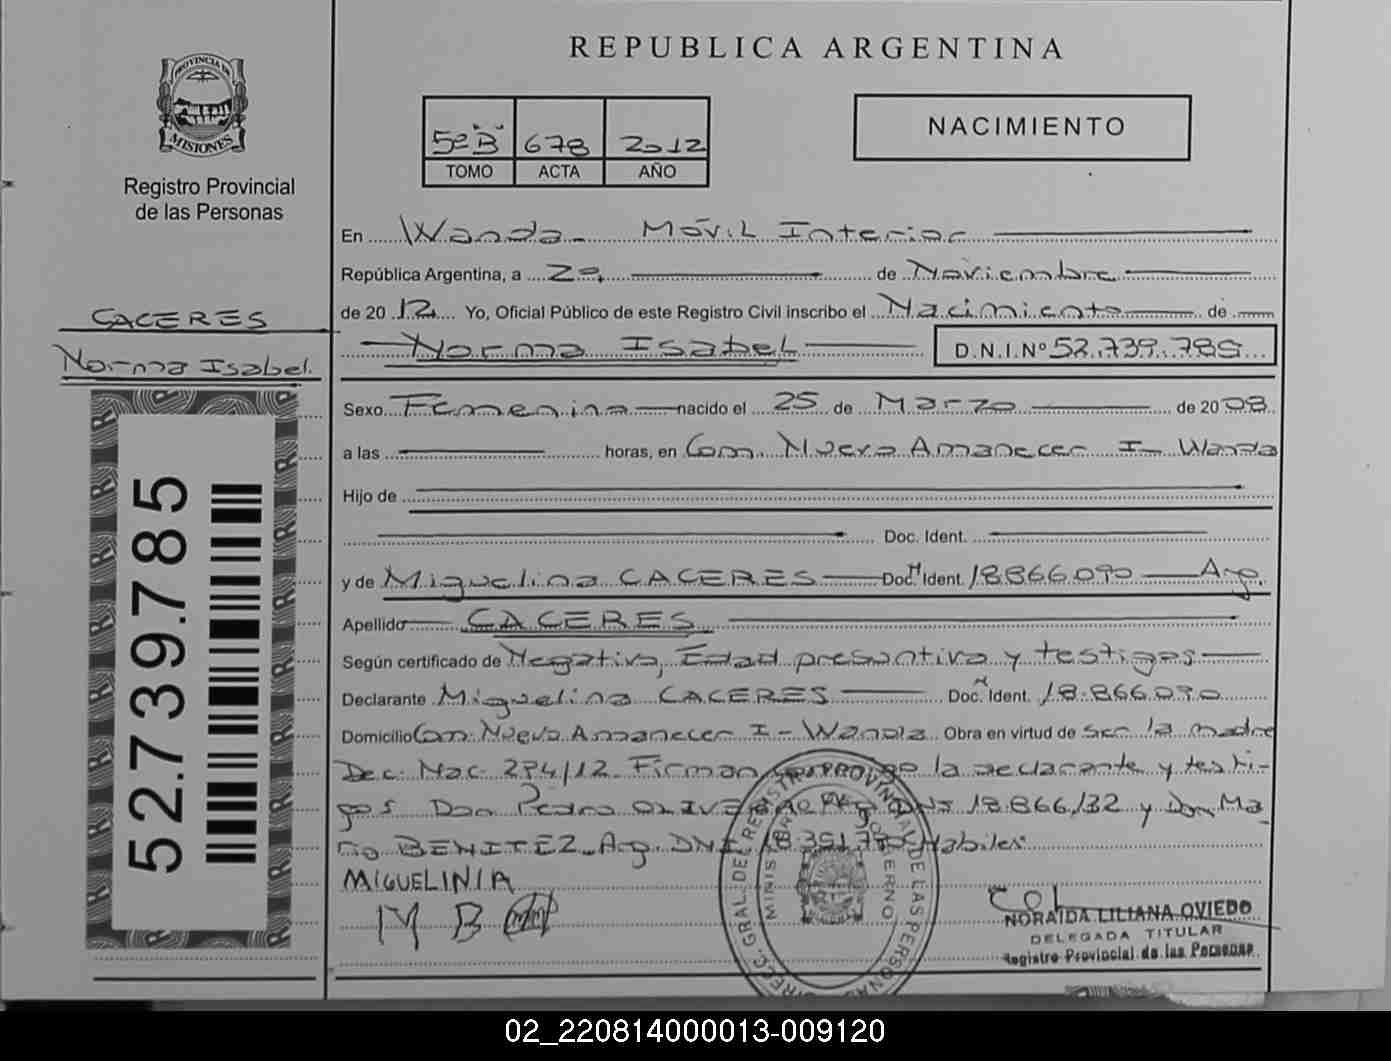 REPUBLICA ARGENTINA
PROVINCIA DE
MISIONES
Registro Provincial
de las Personas
5º "B" 678 2012
TOMO ACTA AÑO
NACIMIENTO
En Wanda - Móvil Interior
República Argentina, a 29 de Noviembre
de 2012 Yo, Oficial Público de este Registro Civil inscribo el Nacimiento de
Norma Isabel D.N.I.Nº 52.739.785
CACERES
Norma Isabel.
52.739.785
Sexo Femenina nacido el 25 de Marzo de 2008
a las horas, en Com. Nueva Amanecer I - Wanda
Hijo de
Doc. Ident.
y de Miguelina CACERES Doc. Ident. 18.866.090 Arg.
Apellido CACERES
Según certificado de Negativa, Edad presuntiva y testigos
Declarante Miguelina CACERES Doc. Ident. 18.866.090
Domicilio Com. Nueva Amanecer I - Wanda Obra en virtud de ser la madre
Dec. Nac. 294/12. Firman la declarante y testi-
gos Don Pedro DNI 18.866.132 y Don Ma
rio BENITEZ Arg. DNI. Habiles
MIGUELINIA
M B
NORAIDA LILIANA OVIEDO
DELEGADA TITULAR
Registro Provincial de las Personas
02_220814000013-009120